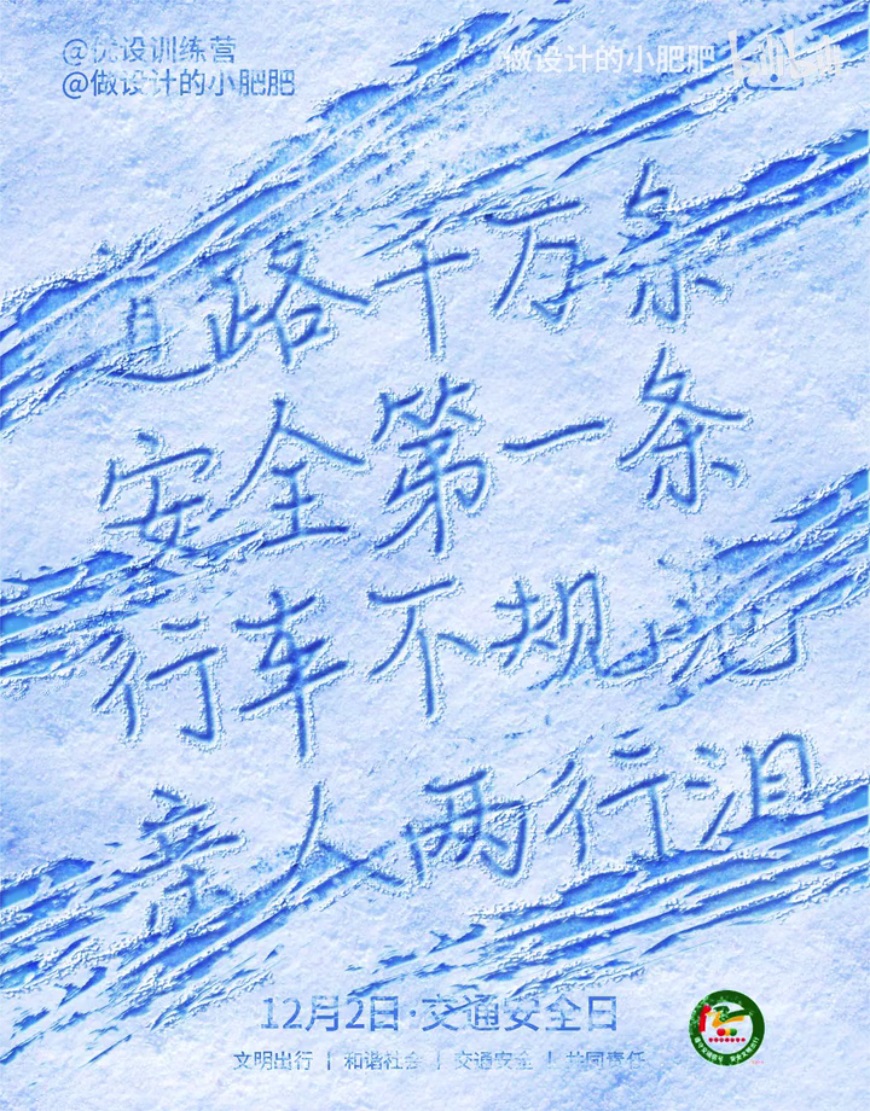 @优设训练营
@做设计的小肥肥
做设计的小肥肥 bilibili
道路千万条
安全第一条
行车不规范
亲人两行泪
12月2日·交通安全日
文明出行 | 和谐社会 | 交通安全 | 共同责任
122